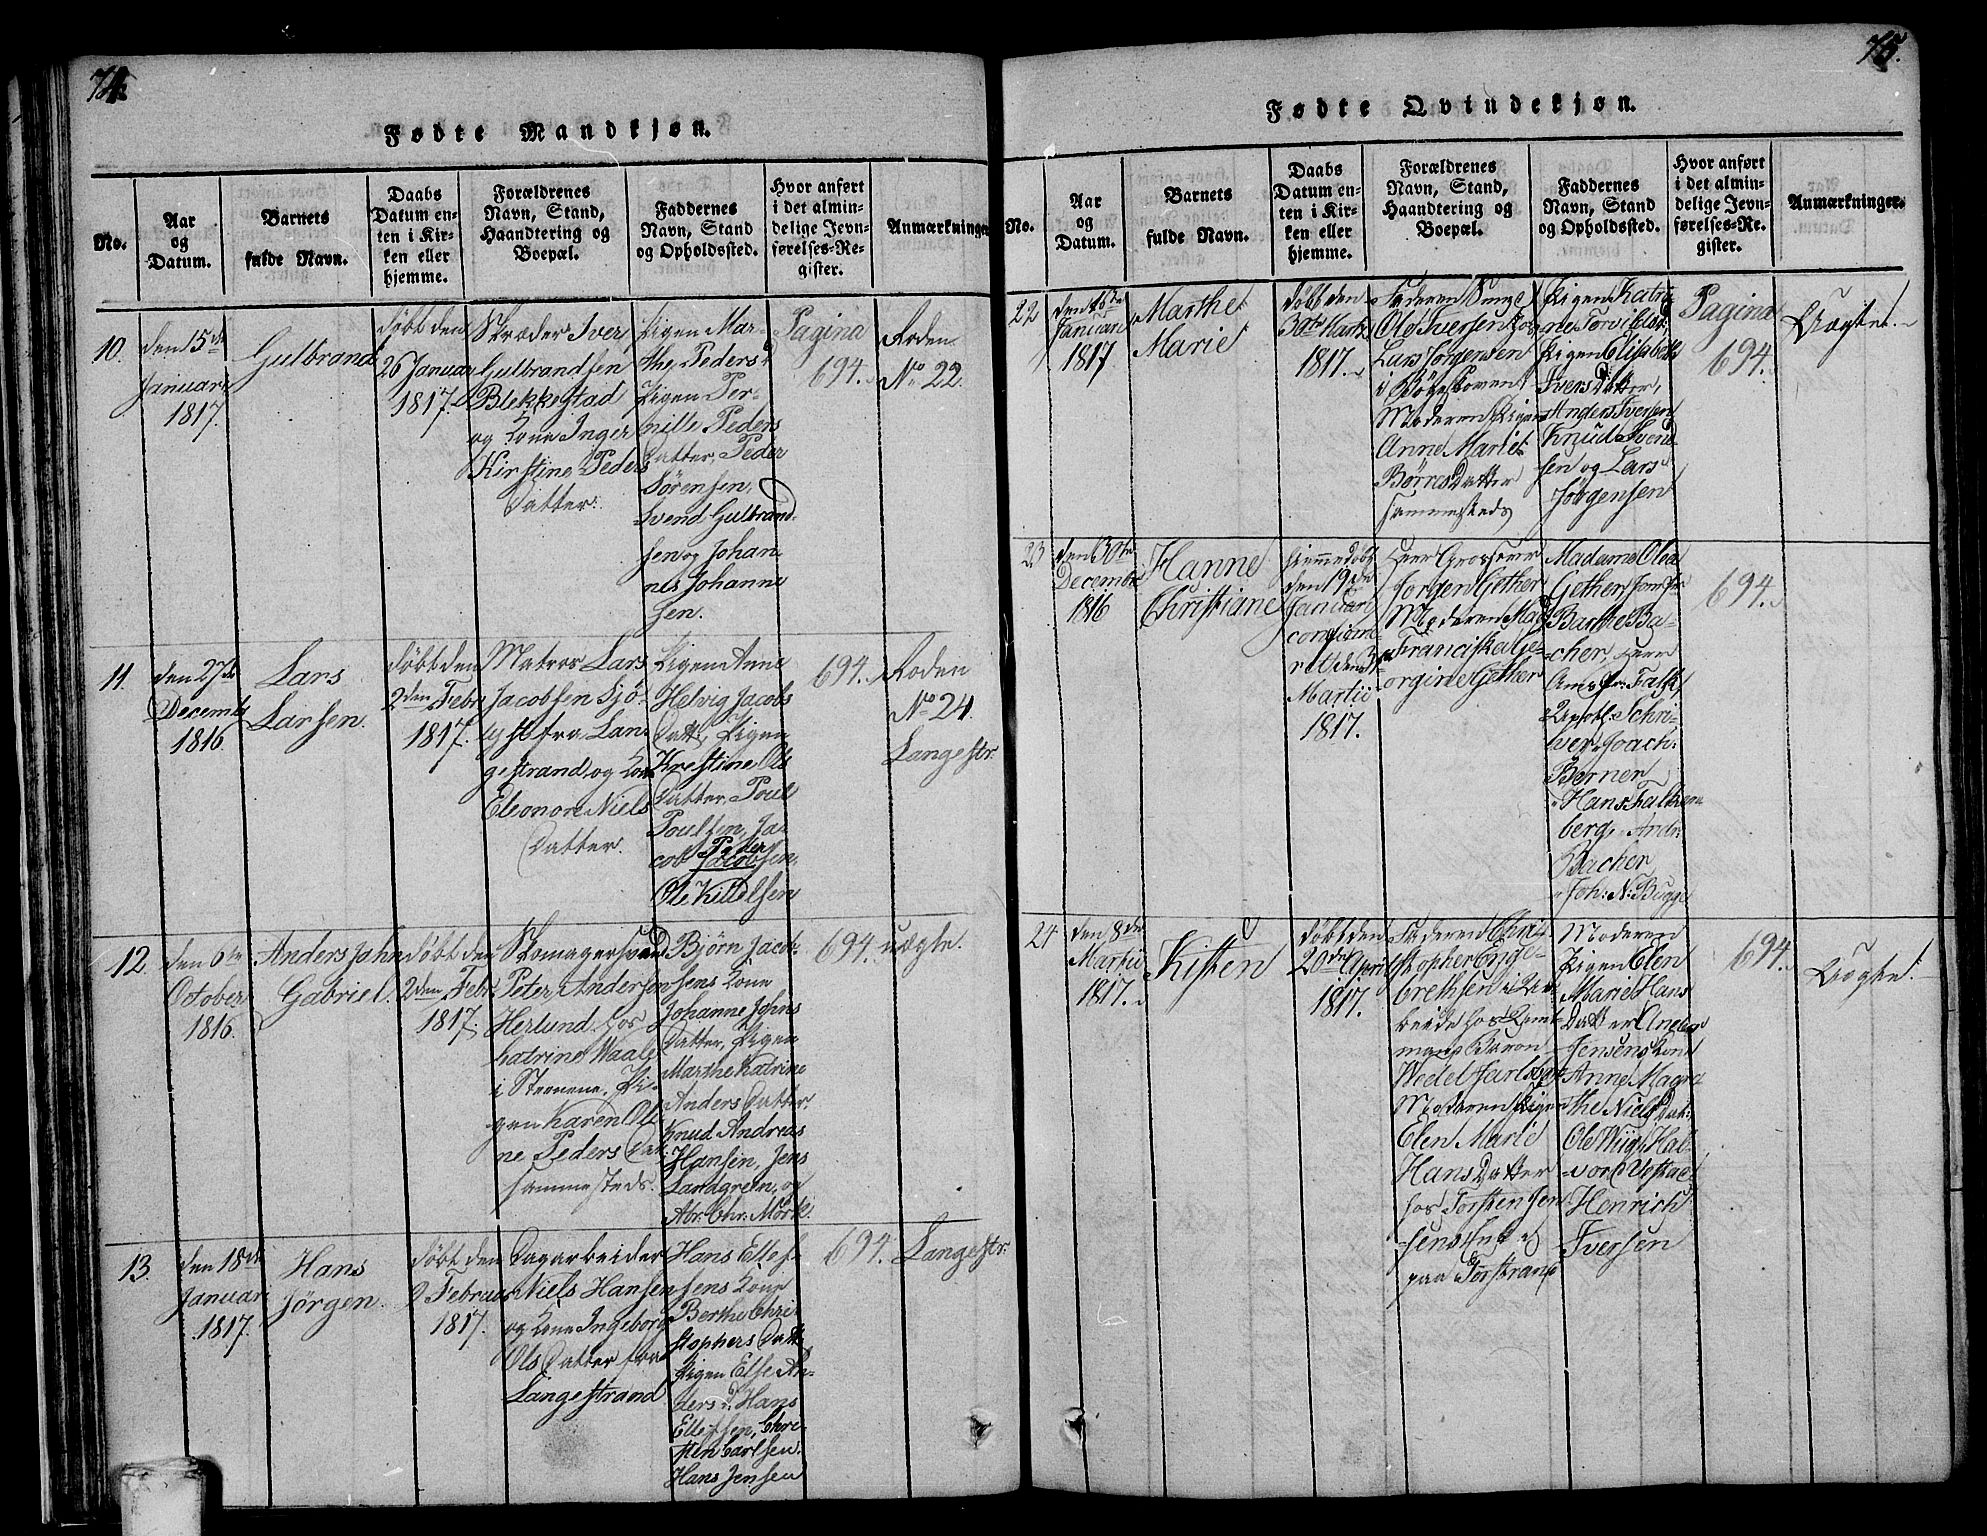 74.
Fødte Mandkjøn.
No.
Aar
og
Datum.
Barnets
fulde Navn.
Daabs
Datum en-
ten i Kir-
ken eller
hjemme.
Forældrenes
Navn, Stand,
Haandtering og
Boepæl.
Faddernes
Navn, Stand
og Opholdssted.
Hvor anført
i det almin-
delige Jevn-
førelses-Re-
gister.
Anmærkninger
10.
den 15de
Januari
1817.
Gulbrand
døbt den
26 Januar
1817.
Skræder Iver
Gulbrandsen
Blekkestad
og Kone Inger
Kirstine Peders
Datter.
Pigen Mar-
the Peders d
Pigen Per-
nille Peders
Datter, Peder
Sørensen,
Svend Gulbrand-
sen og Johan
nes Johanne
sen.
Pagina
694.
Roden
No 22.
11.
den 27de
Decembr
1816.
Lars
Larsen.
døbt den
2den Febr
1817.
Matros Lars
Jacobsen Sjø-
lyst fra Lan-
gestrand, og Kone
Eleonore Niels
Datter.
Pigen Anne
Helvig Jacobs
Datt, Pigen
Krestine Ols
Datter, Poul
Poulsen, Ja-
cob Peder
Jacobsen,
Ole Killelsen
694.
Roden
No 24.
Langestr.
12.
den 6te
October
1816.
Anders Jahn
Gabriel.
døbt den
2den Febr
1817.
Skomagersvend
Peter Andersen
Herlund hos
Catrine Waale
i Steenene, Pi-
gen Karen Oli
ne Peders Dat
sammesteds.
Bjørn Jacob-
sens Kone
Johanne Johns
Datter, Pigen
Marthe Katrine
Anders Datter.
Knud Andreas
Hansen, Jens
Landgreen, og
Abr. Chr. Mørk.
694.
uægte.
13.
den 18de
Januari
1817.
Hans
Jørgen.
døbt den
9 Februar
1817.
Dagarbeider
Niels Hansen
og Kone Ingeborg
Ols Datter fra
Langestrand
Hans Ellef-
sens Kone
Berthe Chri-
stophers Datt
Pigen Else An-
ders d. Hans
Ellefsen, Chri-
sten Carlsen.
Hans Jensen
694.
Langestr.
75.
Fødte Qvindekjøn.
No.
Aar
og
Datum.
Barnets
fulde Navn.
Daabs
Datum en-
ten i Kir-
ken eller
hjemme.
Forældrenes
Navn, Stand,
Haandtering og
Boepæl.
Faddernes
Navn, Stand
og Opholdssted.
Hvor anført
i det almin-
delige Jevn-
førelses-Re-
gister.
Anmærkninger.
22
den 16de
Januari
1817
Marthe
Marie
døbt den
30te Martz
1817.
Faderen Unge
Ole Iversen hos
Lars Jørgensen
i Bøgeskoven
Moderen Pigen
Anne Marie
Børres Datter
sammesteds
Pigen Katri
ne Torvildsd.
Pigen Elisabeth
Ivers Datter,
Anders Iversen
Knud Svend
sen og Lars
Jørgensen
Pagina
694.
Uægte.
23
den 30te
Decembr
1816
Hanne
Christiane
hiemmedøbt
den 19de
Januari
confirme-
ret den
Martii
1817.
Herr Grosserer
Jørgen Gether
Moderen Mad
Franciska Ge-
orgine Gether
Madame Olea
Gether, Jomfr
Barthe Ba-
cher, Herr
Falk,
Apoth. Schri-
ver, Joach.
Berner
Hans Falken
berg, Andr.
Bacher
Joh. N. Bugge
694.
24
den 8de
Martii
1817.
Kisten
døbt den
20de April
1817.
Faderen Chri-
stopher Enge-
brethsen i Ar
beide hos Amt-
mand Baron
Wedel Jarlsberg
Moderen Pigen
Elen Marie
Hans Datter
hos Torsten Jen
sens Enke
paa Torstrand
Moderen
Pigen Elen
Marie Hans
Datter, Anders
Jensens Kone
Anne Magre
the Niels Dat:
Ole Wiig, Hal-
vor
Henrich
Iversen
694.
Uægte.